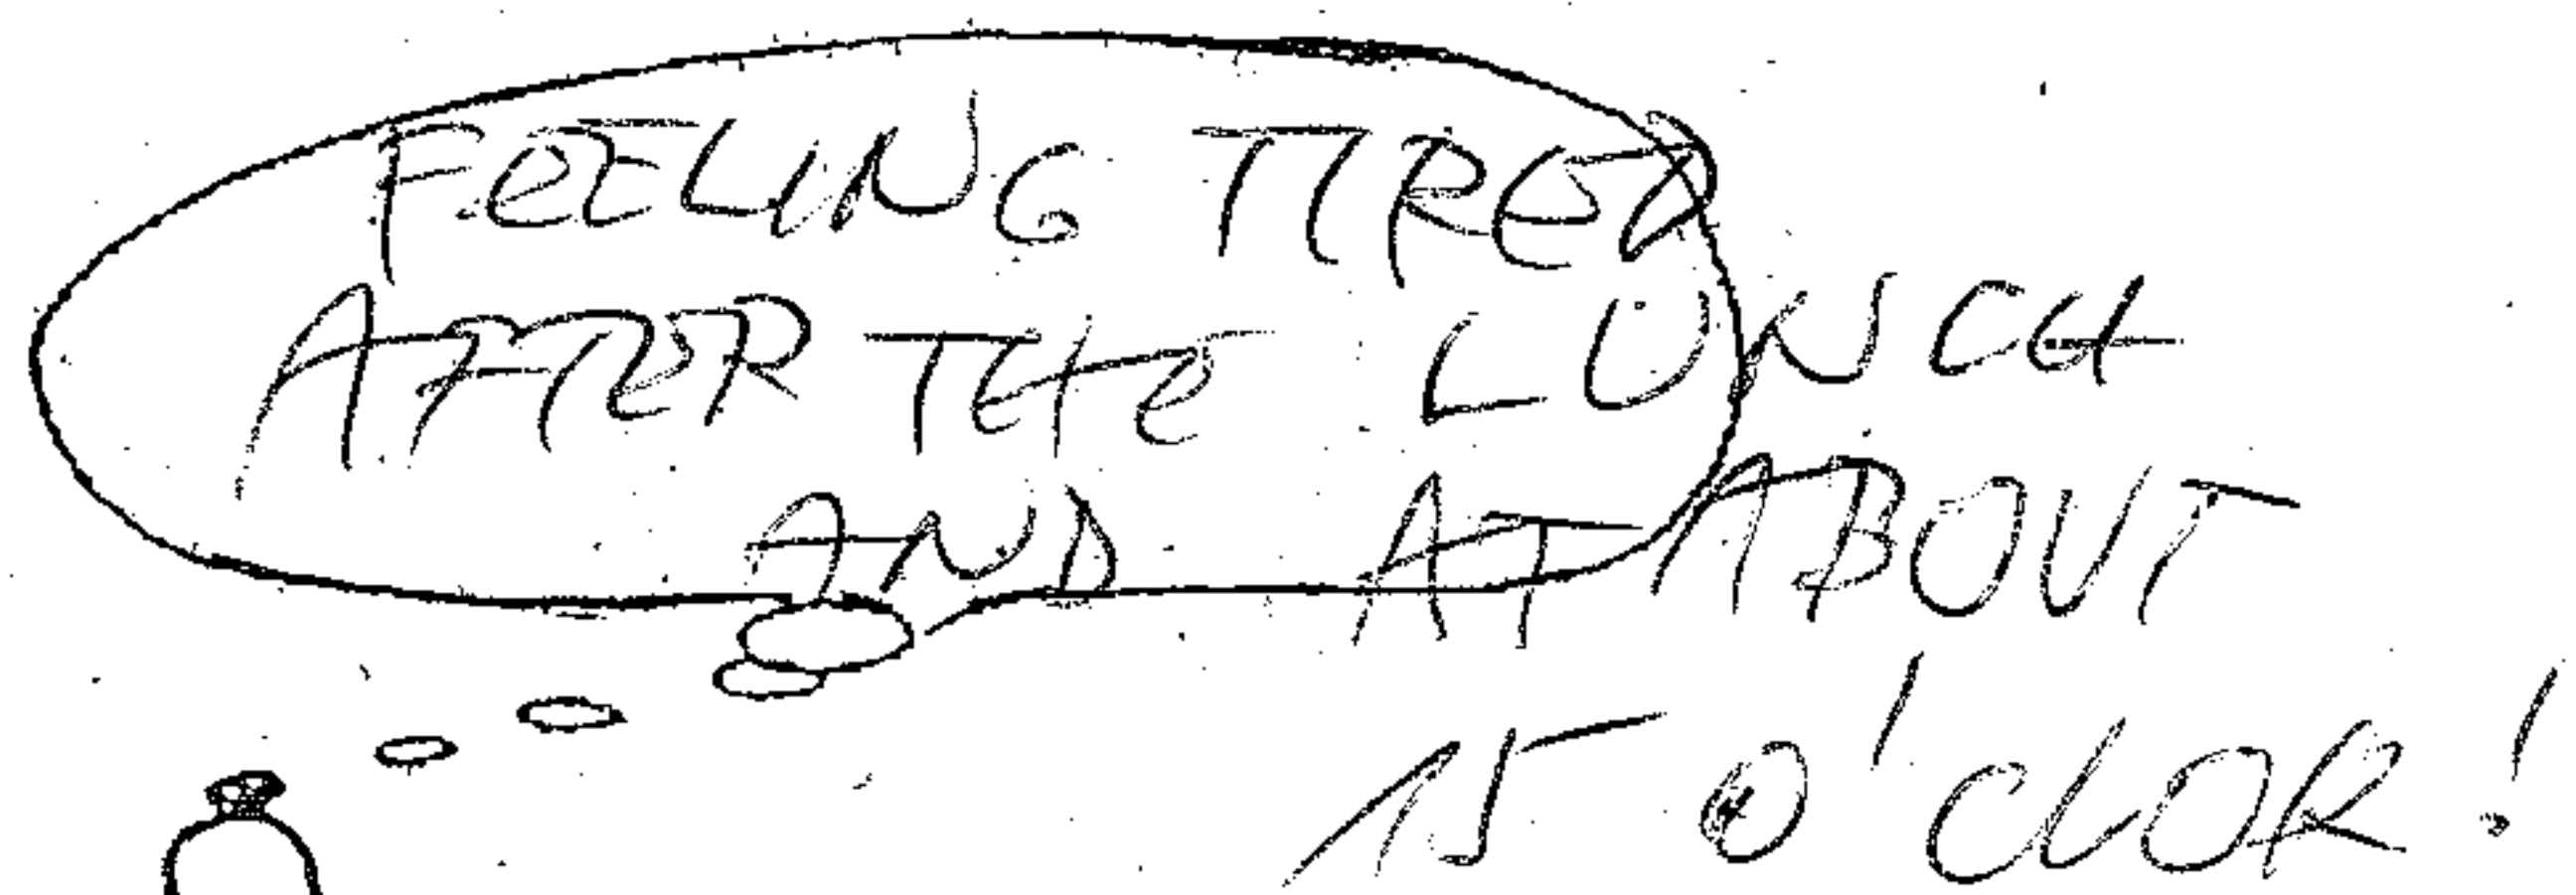 FEELING TIRED
AFTER THE LUNCH
AND AT ABOUT
15 O'CLOK!